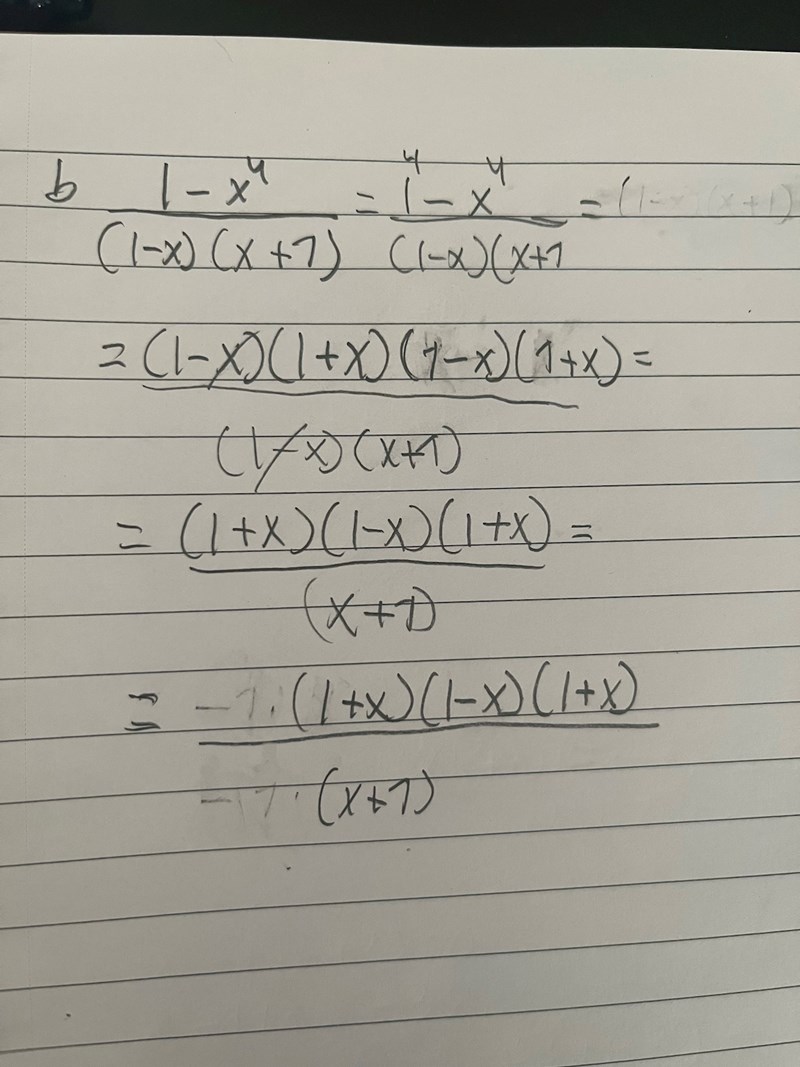 b (1-x⁴)/((1-x)(x+1)) = (1⁴-x⁴)/((1-x)(x+1 = (1-x)(x+1)
= ((1-x)(1+x)(1-x)(1+x))/((1-x)(x+1)) =
= ((1+x)(1-x)(1+x))/(x+1) =
= (-1·(1+x)(1-x)(1+x))/(-1·(x+1))